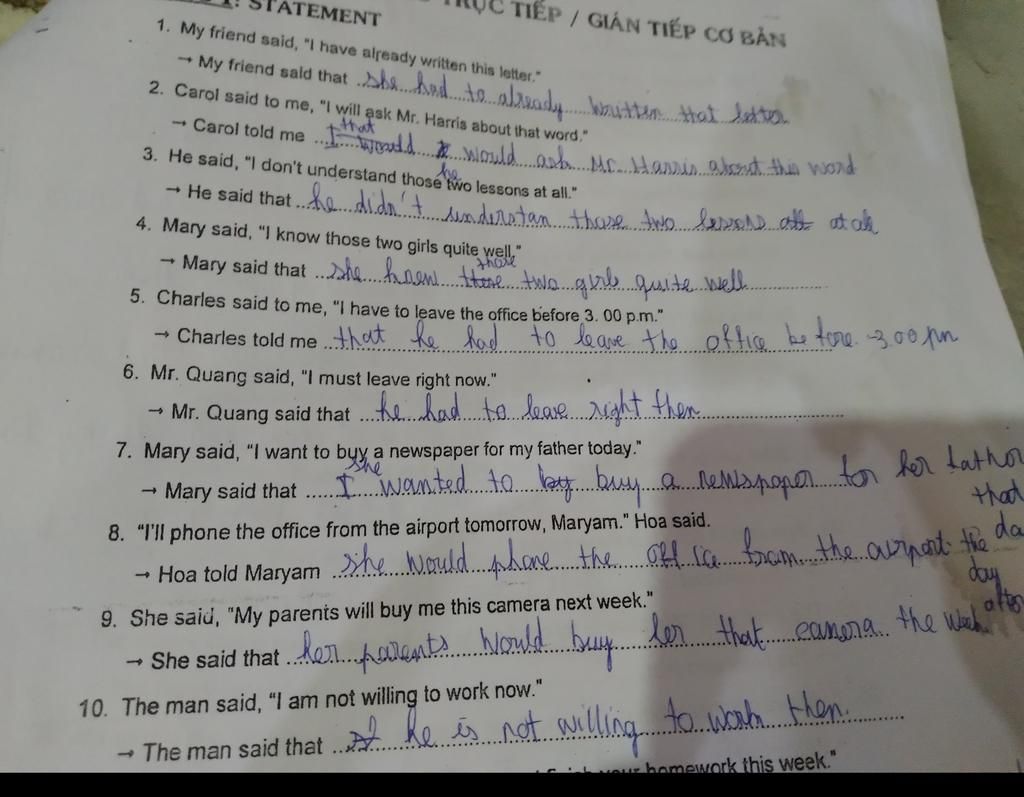 : STATEMENT TRỰC TIẾP / GIÁN TIẾP CƠ BẢN
1. My friend said, "I have already written this letter."
→ My friend said that she had to already written that letter
2. Carol said to me, "I will ask Mr. Harris about that word."
that
→ Carol told me I would would ask Mr. Harris about this word
3. He said, "I don't understand those two lessons at all."
he
→ He said that he didn't understan those two lessons at all
4. Mary said, "I know those two girls quite well."
those
→ Mary said that she knew those two girls quite well
5. Charles said to me, "I have to leave the office before 3. 00 p.m."
→ Charles told me that he had to leave the office before 3.00 pm
6. Mr. Quang said, "I must leave right now."
→ Mr. Quang said that he had to leave right then
7. Mary said, "I want to buy a newspaper for my father today."
she
→ Mary said that I wanted to by buy a newspaper for her father
that
da
8. "I'll phone the office from the airport tomorrow, Maryam." Hoa said.
→ Hoa told Maryam she would phone the office from the airport the
day
after
9. She said, "My parents will buy me this camera next week."
→ She said that her parents would buy her that camera the week
10. The man said, "I am not willing to work now."
→ The man said that he is not willing to work then.
your homework this week."